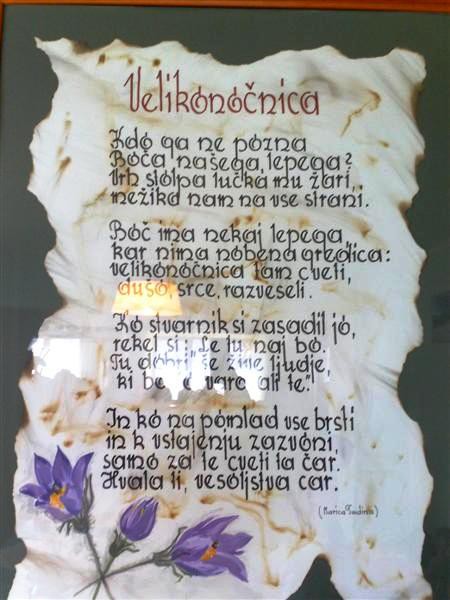 Velikonočnica
Kdo ga ne pozna
Boča našega lepega?
Vrh stolpa lučka mu žari,
mežika nam na vse strani.
Boč ima nekaj lepega,
kar nima nobena gredica:
velikonočnica tam cveti,
dušo, srce, razveseli.
Ko stvarnik si zasadil jo,
rekel si: "Le tu naj bo.
Tu dobri še žive ljudje,
ki bodo varovali te."
In ko na pomlad vse brsti
in k vstajenju zazvoni,
samo za te cveti ta čar.
Hvala ti, vesoljstva car.
(Marica